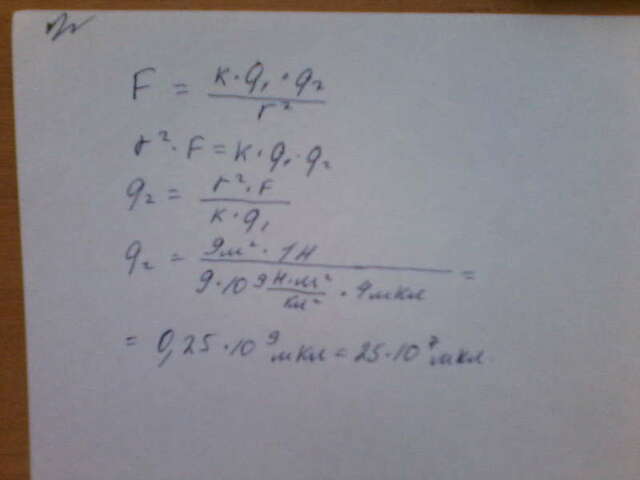 F = к·q₁·q₂ / r²
r²·F = к·q₁·q₂
q₂ = r²·F / к·q₁
q₂ = 9м²·1Н / 9·10⁹ Н·м²/Кл² · 4мкл =
= 0,25·10⁹ мкл = 25·10⁷ мкл.